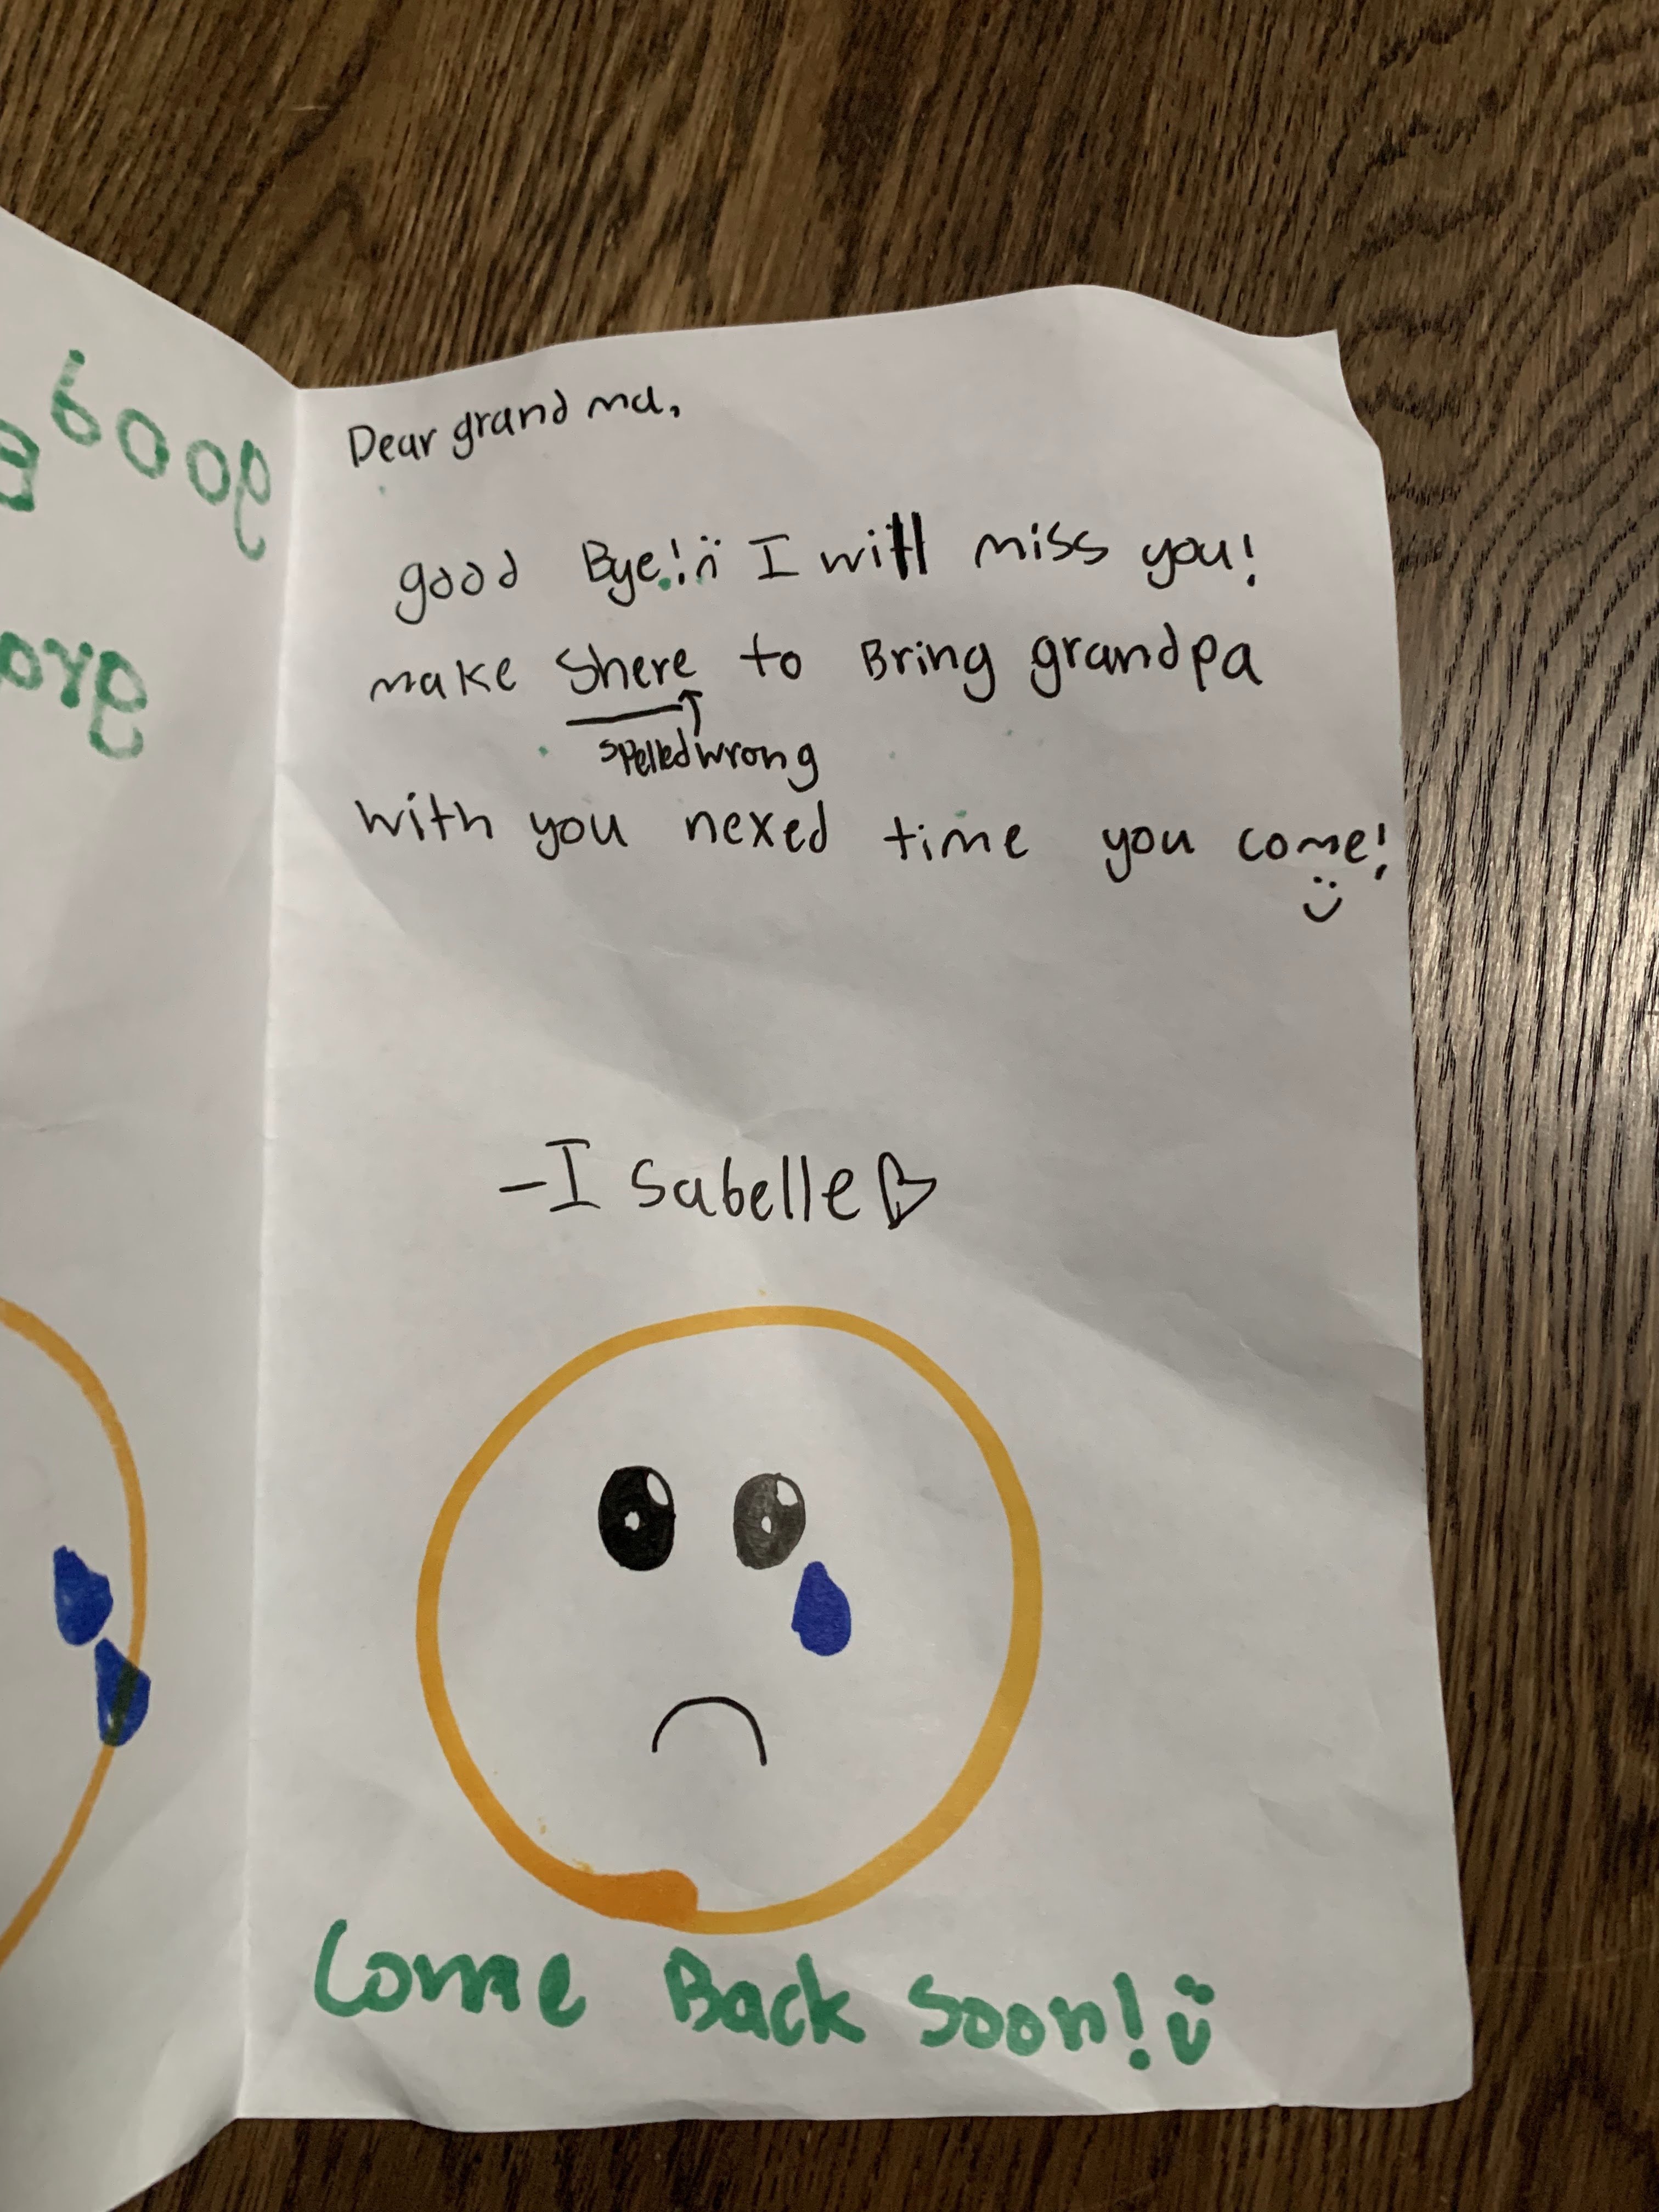 Dear grand ma,
good Bye! :( I will miss you!
make Shere to Bring grandpa
spelled wrong
with you nexed time you come!
:)
- I sabelle ♡
Come Back Soon! :)